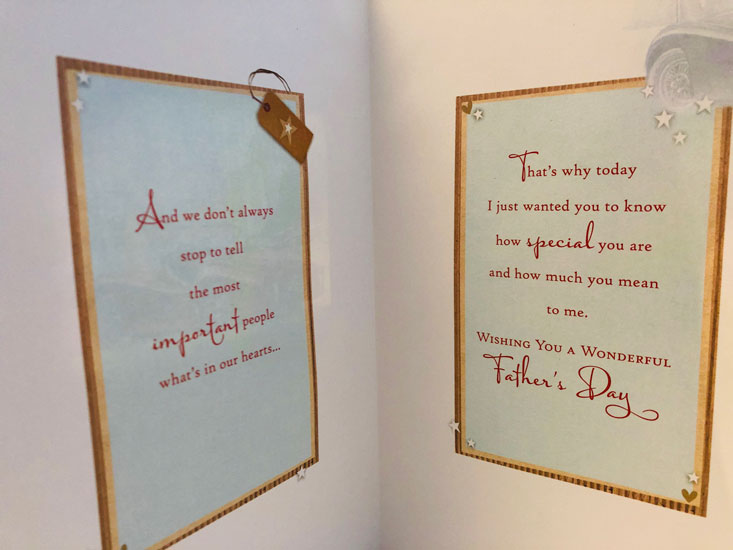 And we don't always
stop to tell
the most
important people
what's in our hearts...
That's why today
I just wanted you to know
how special you are
and how much you mean
to me.
Wishing You a Wonderful
Father's Day